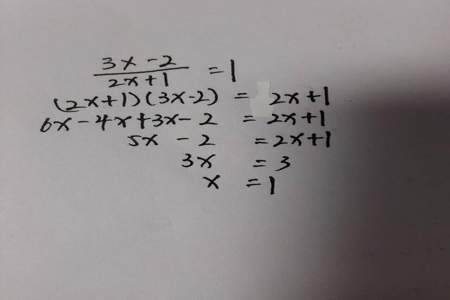 (3x-2)/(2x+1) = 1
(2x+1)(3x-2) = 2x+1
6x-4x+3x-2 = 2x+1
5x-2 = 2x+1
3x = 3
x = 1